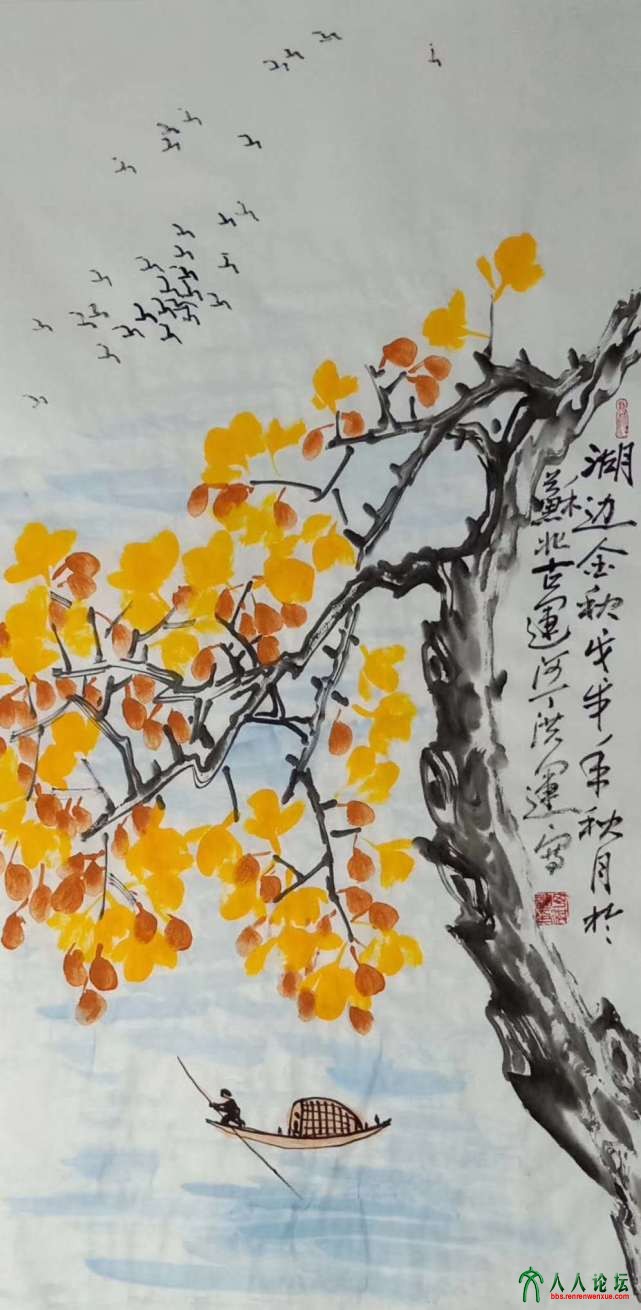 湖边金秋戊戌年秋月於
蘇北古運河丁洪運寫
人人论坛
bbs.renrenwenxue.com